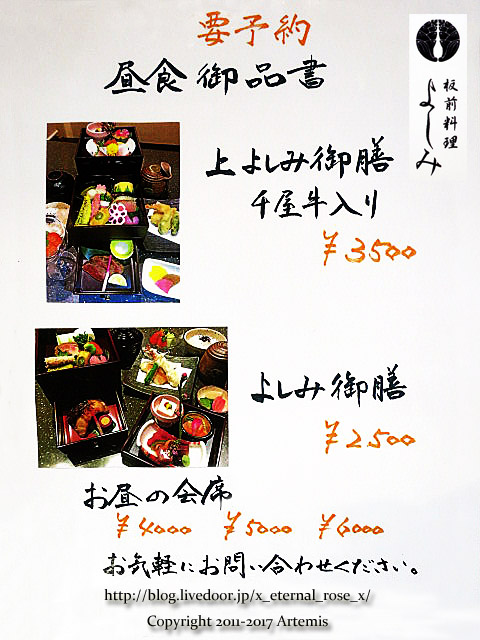 要予約
昼食御品書
板前料理
よしみ
上よしみ御膳
千屋牛入り
¥3500
よしみ御膳
¥2500
お昼の会席
¥4000 ¥5000 ¥6000
お気軽にお問い合わせください。
http://blog.livedoor.jp/x_eternal_rose_x/
Copyright 2011-2017 Artemis